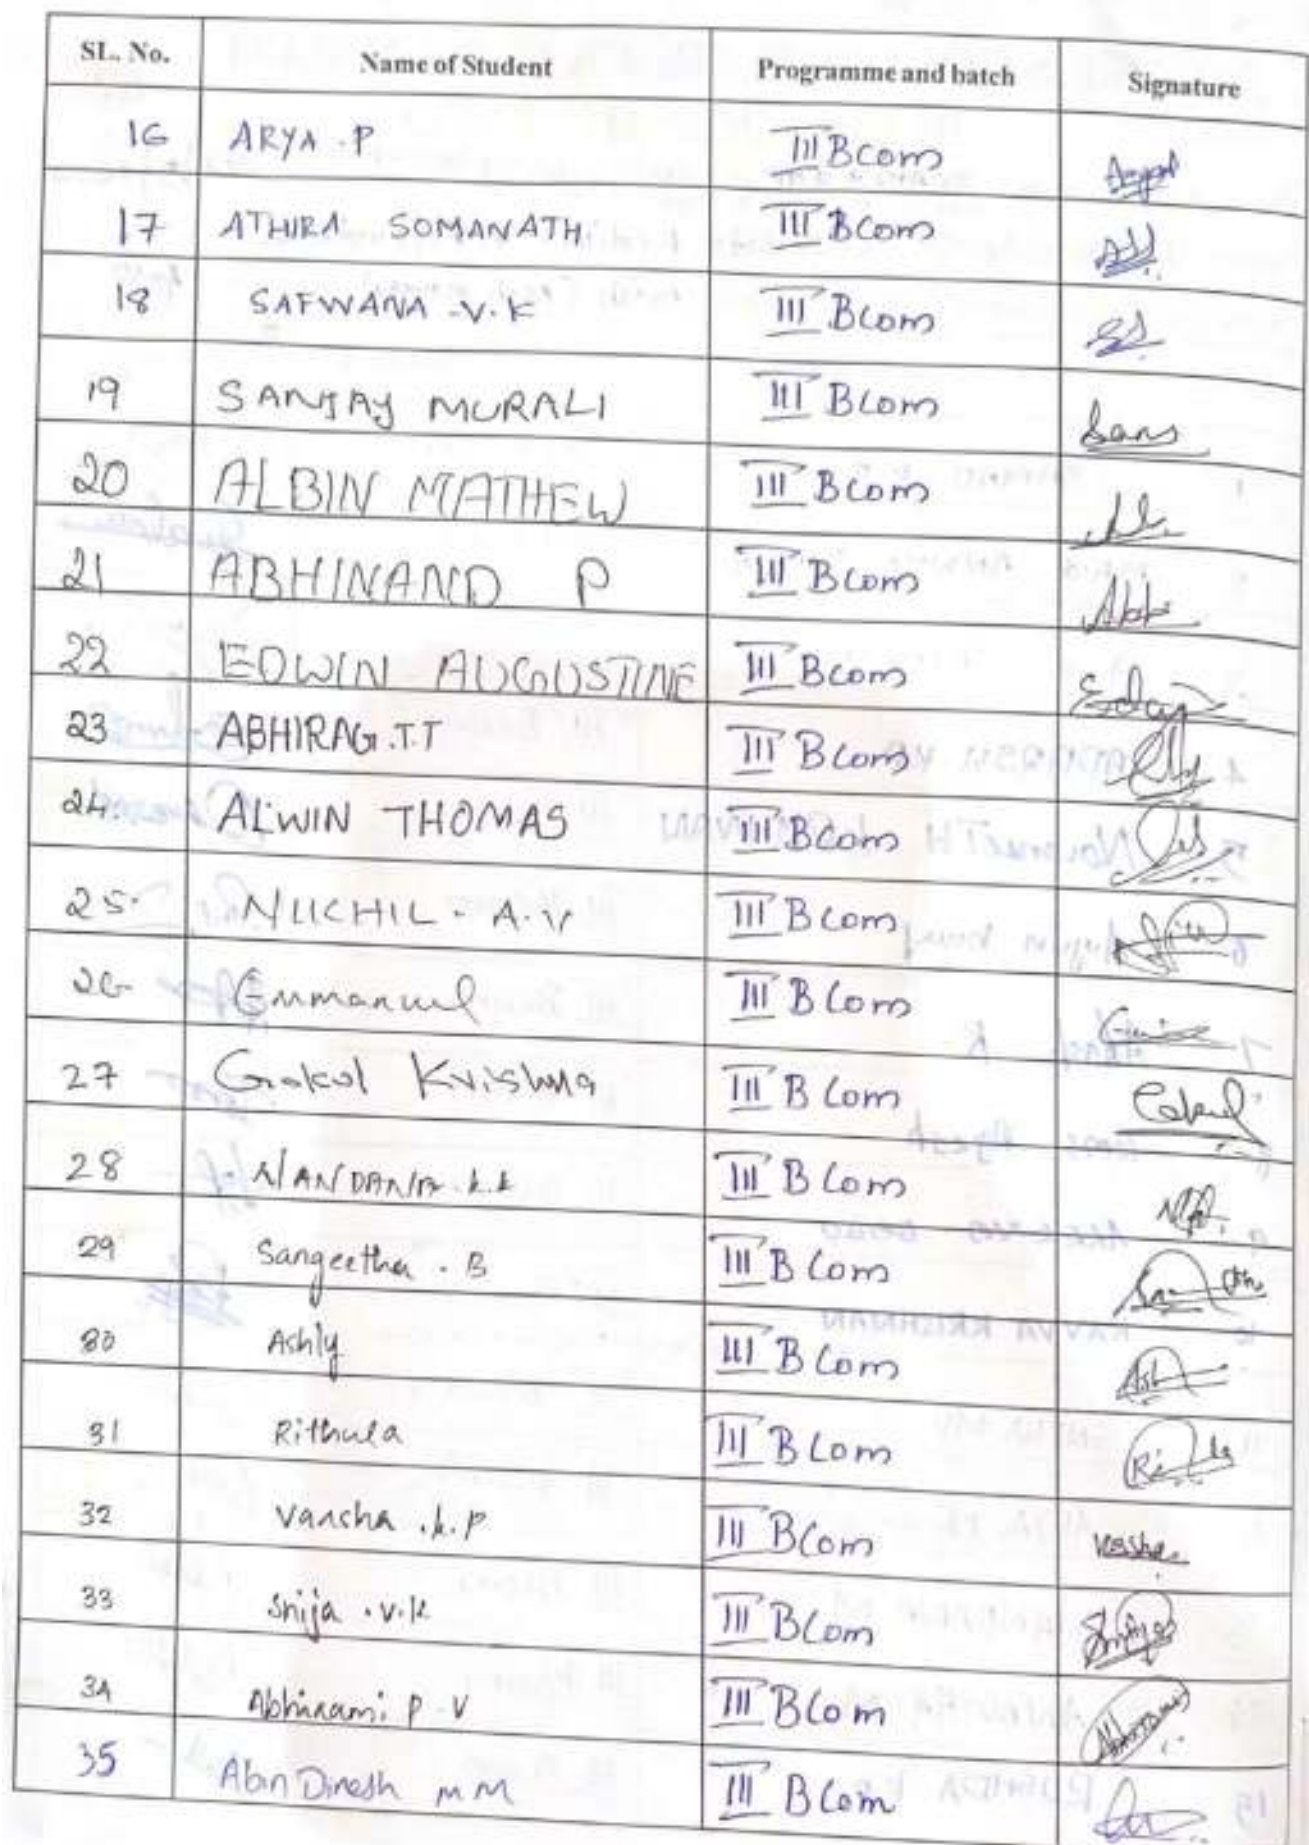 SL. No. Name of Student Programme and batch Signature
16 ARYA .P III BCom
17 ATHIRA SOMANATH. III BCom
18 SAFWANA .V.K III BCom
19 SANJAY MURALI III BCom Sans
20 ALBIN MATHEW III BCom
21 ABHINAND P III BCom Abhi
22 EDWIN AUGUSTINE III BCom
23 ABHIRAG.T.T III BCom
24 ALWIN THOMAS III BCom
25. A.V III BCom
26 Emmanuel III BCom
27 Gokul Krishna III BCom Gokul
28 NANDANA.k.k III BCom
29 Sangeetha . B III BCom
30 Ashly III BCom Ash
31 Rithula III BCom
32 Varsha .k.p III BCom Varsha
33 Snija .V.K III BCom
34 Abhirami P.V III BCom
35 Abin Dinesh M M III BCom